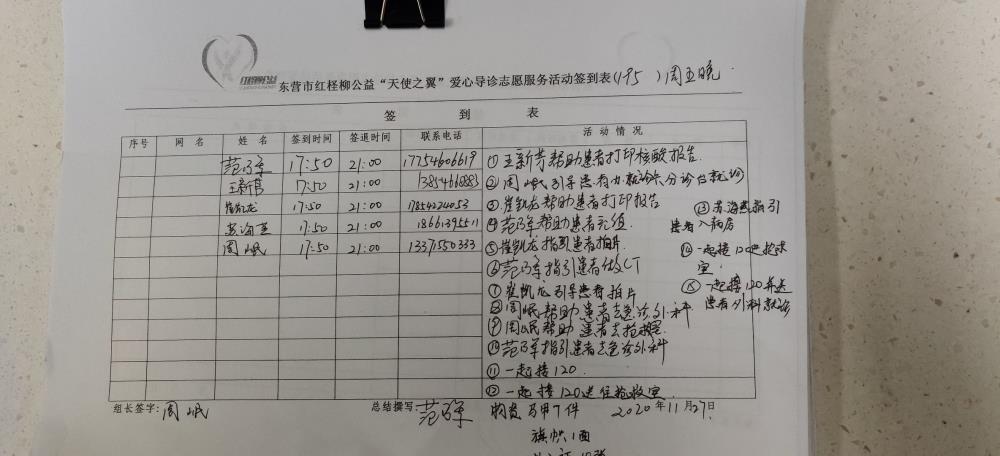 东营市红柽柳公益“天使之翼”爱心导诊志愿服务活动签到表(195)周五晚
签 到 表
序号 网名 姓名 签到时间 签退时间 联系电话 活动情况
17:50 21:00 17754606619 ①王新芳帮助患者打印核酸报告.
17:50 21:00 ②周岷引导患者办就诊卡分诊台就诊
崔凯龙 17:50 21:00 ③崔凯龙帮助患者打印报告
17:50 21:00 帮助患者充值
周岷 17:50 21:00 13371550333 ⑤崔凯龙指引患者拍片
指引患者做CT
⑦崔凯龙引导患者拍片
⑧周岷帮助患者去急诊外科
⑨周岷帮助患者去抢救室
指引患者去急诊外科
⑪一起接120.
⑫一起接120送往抢救室
指引
患者入病房
⑭一起接120进抢救
室.
⑮一起接120并送
患者外科就诊
组长签字:周岷 总结撰写: 物资马甲7件 2020年11月27日
旗帜1面